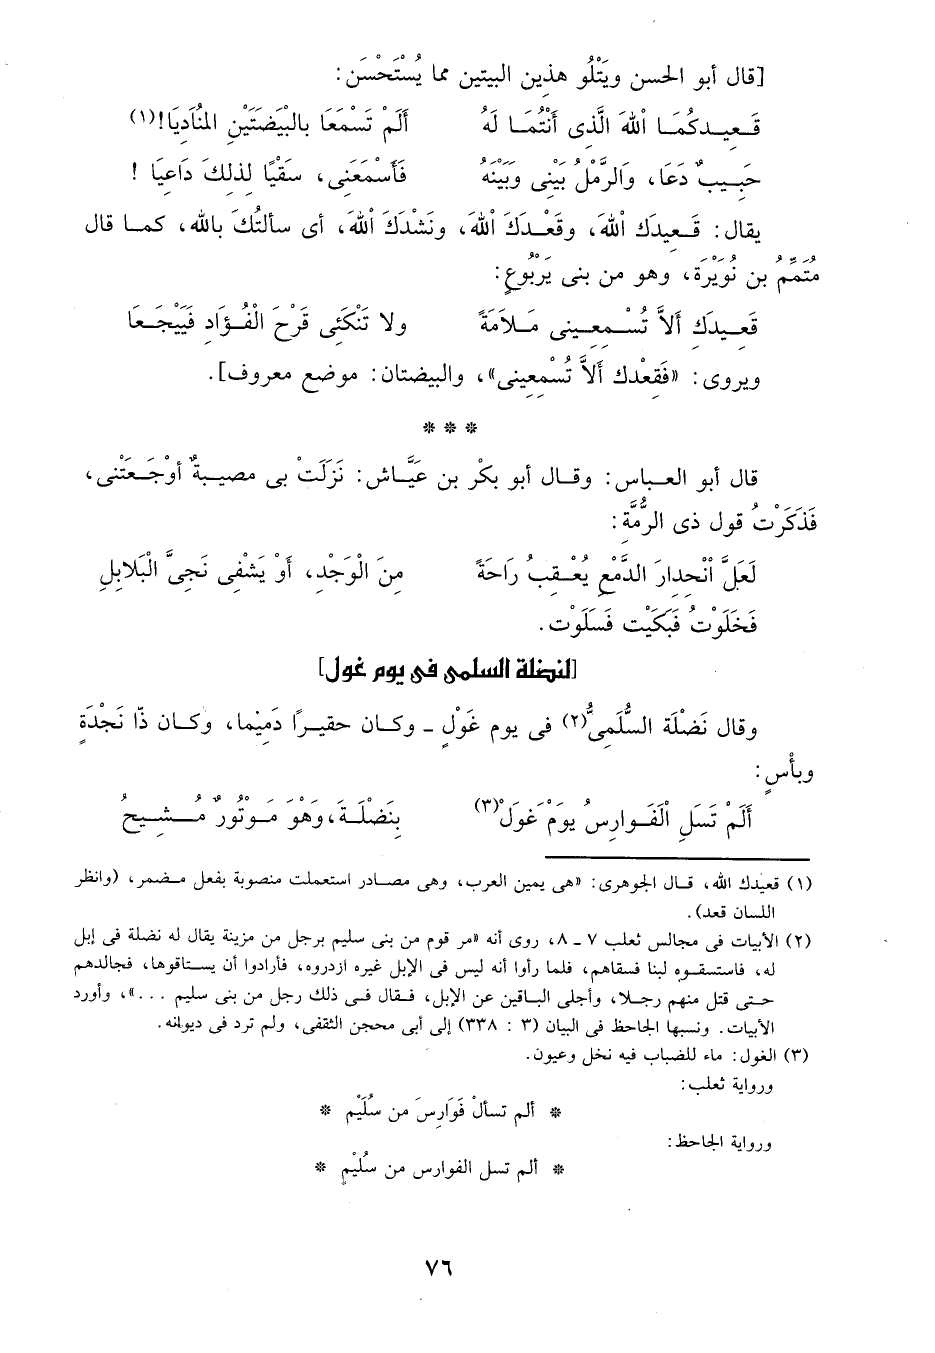 [قال أبو الحسن ويَتْلُو هذين البيتين مما يُسْتَحْسَن:
قَـعِيـدكُمَا اللهَ الَّذِى أَنْتُمَا لَهُ أَلَمْ تَسْمَعَا بِالْبَيْضَتَيْنِ الْمُنَادِيَا!(١)
حَبِـيبٌ دَعَا، والرَّمْلُ بَيْنِى وَبَيْنَهُ فَأَسْمَعَنِى، سَقْيًا لذلِكَ دَاعِيَا !
يقال: قَـعِيدَك اللهَ، وقَعْـدَكَ اللهَ، ونَشْدَكَ اللهَ، أى سألتُكَ بالله، كمـا قال
مُتَمِّمُ بن نُوَيْرَةَ، وهو من بنى يَرْبُوعٍ:
قَعِيدَكِ أَلاَّ تُسْـمِعِينِى مَـلاَمَةً ولا تَنْكَئِى قَرْحَ الْفُـؤَادِ فَيَيْجَـعَا
ويروى: «فَقِعْدكِ أَلاَّ تُسْمِعِينِى»، والبيضتان: موضع معروف].
* * *
قال أبو العـباس: وقـال أبو بكْر بن عَيَّاش: نَزَلَتْ بى مصيبـةٌ أوْجَـعَتْنى،
فَذَكَرْتُ قول ذى الرُّمَّةِ:
لَعَلَّ انْحِدارَ الدَّمْعِ يُعْـقِبُ رَاحَةً مِنَ الْوَجْدِ، أَوْ يَشْفِى نَجِىَّ الْبَلاَبِلِ
فَخَلَوْتُ فَبَكَيْت فَسَلَوْت.
[لنضلة السلمى فى يوم غول]
وقال نَضْلَة السُّلَمِىُّ(٢) فى يوم غَوْلٍ ـ وكـان حقيـرًا دَمِيْما، وكـان ذَا نَجْدَةٍ
وبأْسٍ:
أَلَمْ تَسَلِ الْفَـوَارِسُ يَوْمَ غَوْلٍ(٣) بِنَضْلَـةَ، وَهْوَ مَـوْتُورٌ مُـشِـيحُ
(١) قعيدك الله، قـال الجوهرى: «هى يمين العرب، وهى مصـادر استعملت منصوبة بفعل مـضمر، (وانظر
اللسان قعد).
(٢) الأبيات فى مجالس ثعلب ٧ ـ ٨، روى أنه «مر قوم من بنى سليم برجل من مزينة يقال له نضلة فى إبل
له، فاستسقـوه لبنا فسقاهم، فلما رأوا أنه ليس فى الإبل غيره ازدروه، فأرادوا أن يستاقوها، فجالدهم
حـتى قتل منهم رجـلا، وأجلى البـاقين عن الإبل، فـقال فـى ذلك رجل من بنى سليم ...»، وأورد
الأبيات. ونسبها الجاحظ فى البيان (٣ : ٣٣٨) إلى أبى محجن الثقفى، ولم ترد فى ديوانه.
(٣) الغول: ماء للضباب فيه نخل وعيون.
ورواية ثعلب:
* ألم تسألْ فَوَارِسَ من سُلَيْمِ *
ورواية الجاحظ:
* ألم تسل الفوارس من سُلَيْمٍ *
٧٦